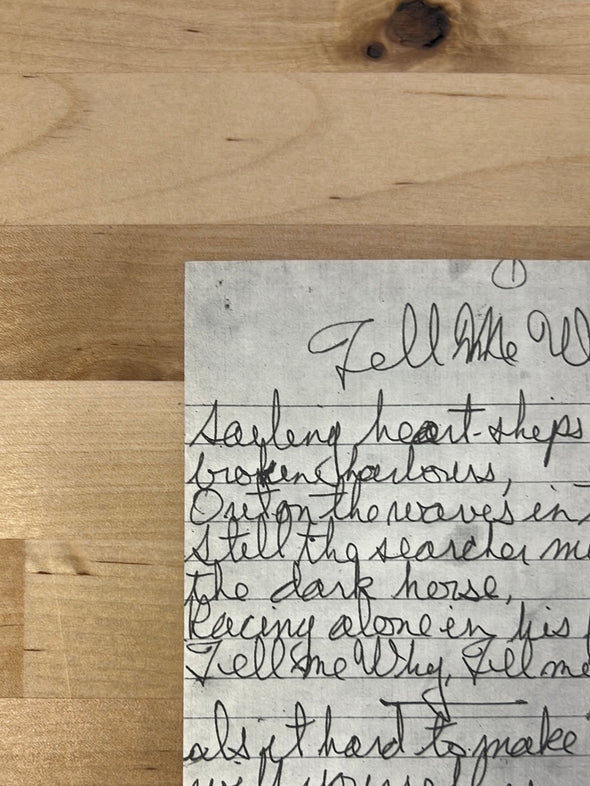 ①
Tell Me W
Sayling heart-ships
broken harbours,
Out on the waves in
Still the searcher mu
the dark horse,
Racing alone in his f
Tell me Why, Tell me
als it hard to make